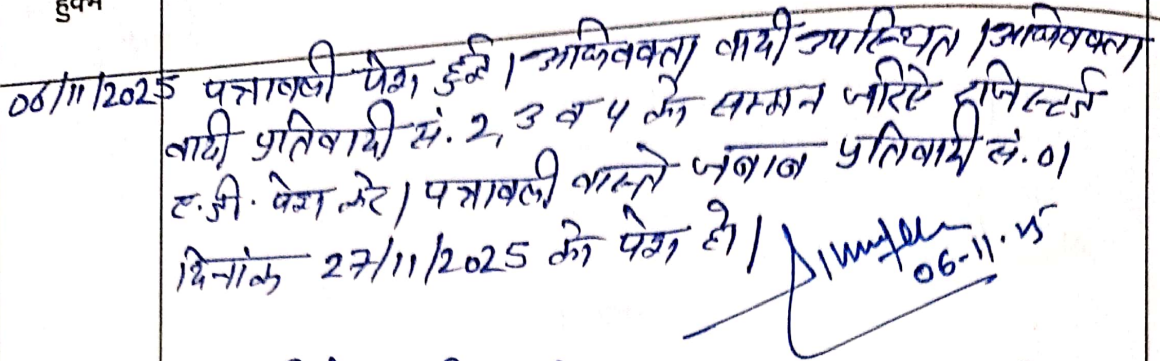 हुक्म
06/11/2025 पत्रावली पेश हुई। अधिवक्ता वादी उपस्थित। अधिवक्ता
वादी प्रतिवादी सं. 2, 3 व 4 के सम्मन जरिऐ रजिस्टर्ड
ए.डी. पेश करे। पत्रावली वास्ते जवाब प्रतिवादी सं. 01
दिनांक 27/11/2025 को पेश हो।
06-11-25